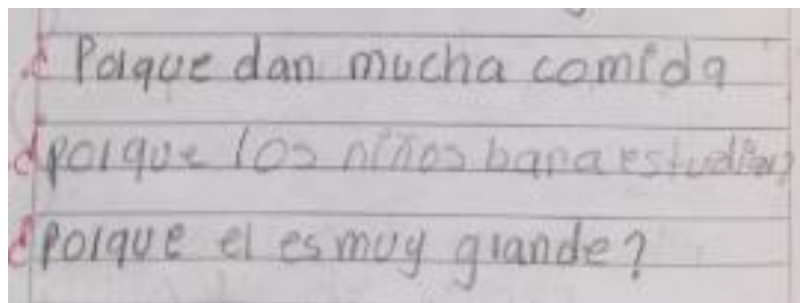 ¿Porque dan mucha comida
¿porque los niños bana estudiar?
¿Porque el es muy grande?